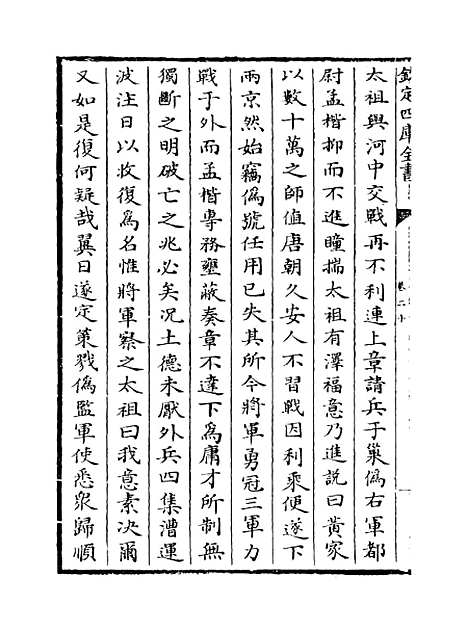 欽定四庫全書
卷二十
太祖與河中交戰再不利連上章請兵于巢偽右軍都
尉孟楷抑而不進瞳揣太祖有澤福意乃進說曰黄家
以數十萬之師值唐朝久安人不習戰因利乘便遂下
兩京然始竊偽號任用已失其所今將軍勇冠三軍力
戰于外而孟楷專務壅蔽奏章不達下為庸才所制無
獨斷之明破亡之兆必矣况土德未厭外兵四集漕運
波注日以收復為名惟將軍察之太祖曰我意素决爾
又如是復何疑哉翼日遂定策戮偽監軍使悉衆歸順